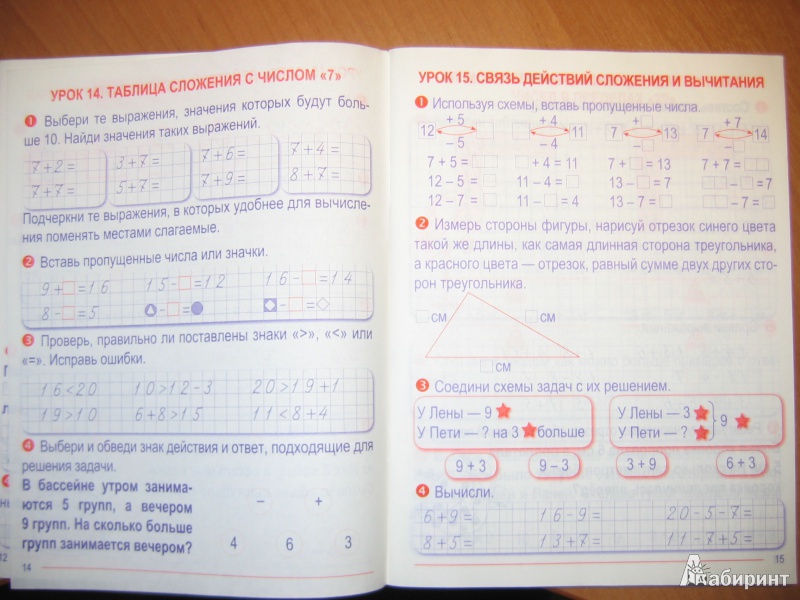 УРОК 14. ТАБЛИЦА СЛОЖЕНИЯ С ЧИСЛОМ «7»
1 Выбери те выражения, значения которых будут боль-
ше 10. Найди значения таких выражений.
7+2= 3+7= 7+6= 7+4=
7+7= 5+7= 7+9= 8+7=
Подчеркни те выражения, в которых удобнее для вычисле-
ния поменять местами слагаемые.
2 Вставь пропущенные числа или значки.
9+□=16 15-□=12 16-□=14
8-□=5 -□= -□=◇
3 Проверь, правильно ли поставлены знаки «>», «<» или
«=». Исправь ошибки.
16<20 10>12-3 20>19+1
19>10 6+8>15 11<8+4
4 Выбери и обведи знак действия и ответ, подходящие для
решения задачи.
В бассейне утром занима-
ются 5 групп, а вечером
9 групп. На сколько больше
групп занимается вечером?
– +
4 6 3
12
14
УРОК 15. СВЯЗЬ ДЕЙСТВИЙ СЛОЖЕНИЯ И ВЫЧИТАНИЯ
1 Используя схемы, вставь пропущенные числа.
+ 5 + 4 +□ + 7
12 □ □ 11 7 13 7 14
– 5 – 4 –□ –□
7 + 5 = □ □ + 4 = 11 7 + □ = 13 7 + 7 = □
12 – 5 = □ 11 – 4 = □ 13 – □ = 7 □ – □ = 7
12 – 7 = □ 11 – □ = 4 13 – 7 = □ □ – 7 = □
2 Измерь стороны фигуры, нарисуй отрезок синего цвета
такой же длины, как самая длинная сторона треугольника,
а красного цвета — отрезок, равный сумме двух других сто-
рон треугольника.
□ см □ см
□ см
3 Соедини схемы задач с их решением.
У Лены — 9 ★ У Лены — 3 ★
У Пети — ? на 3 ★ больше У Пети — ? ★ 9 ★
9 + 3 9 – 3 3 + 9 6 + 3
4 Вычисли.
6+9= 16-9= 20-5-7=
8+5= 13+7= 11-7+5=
15
Лабиринт